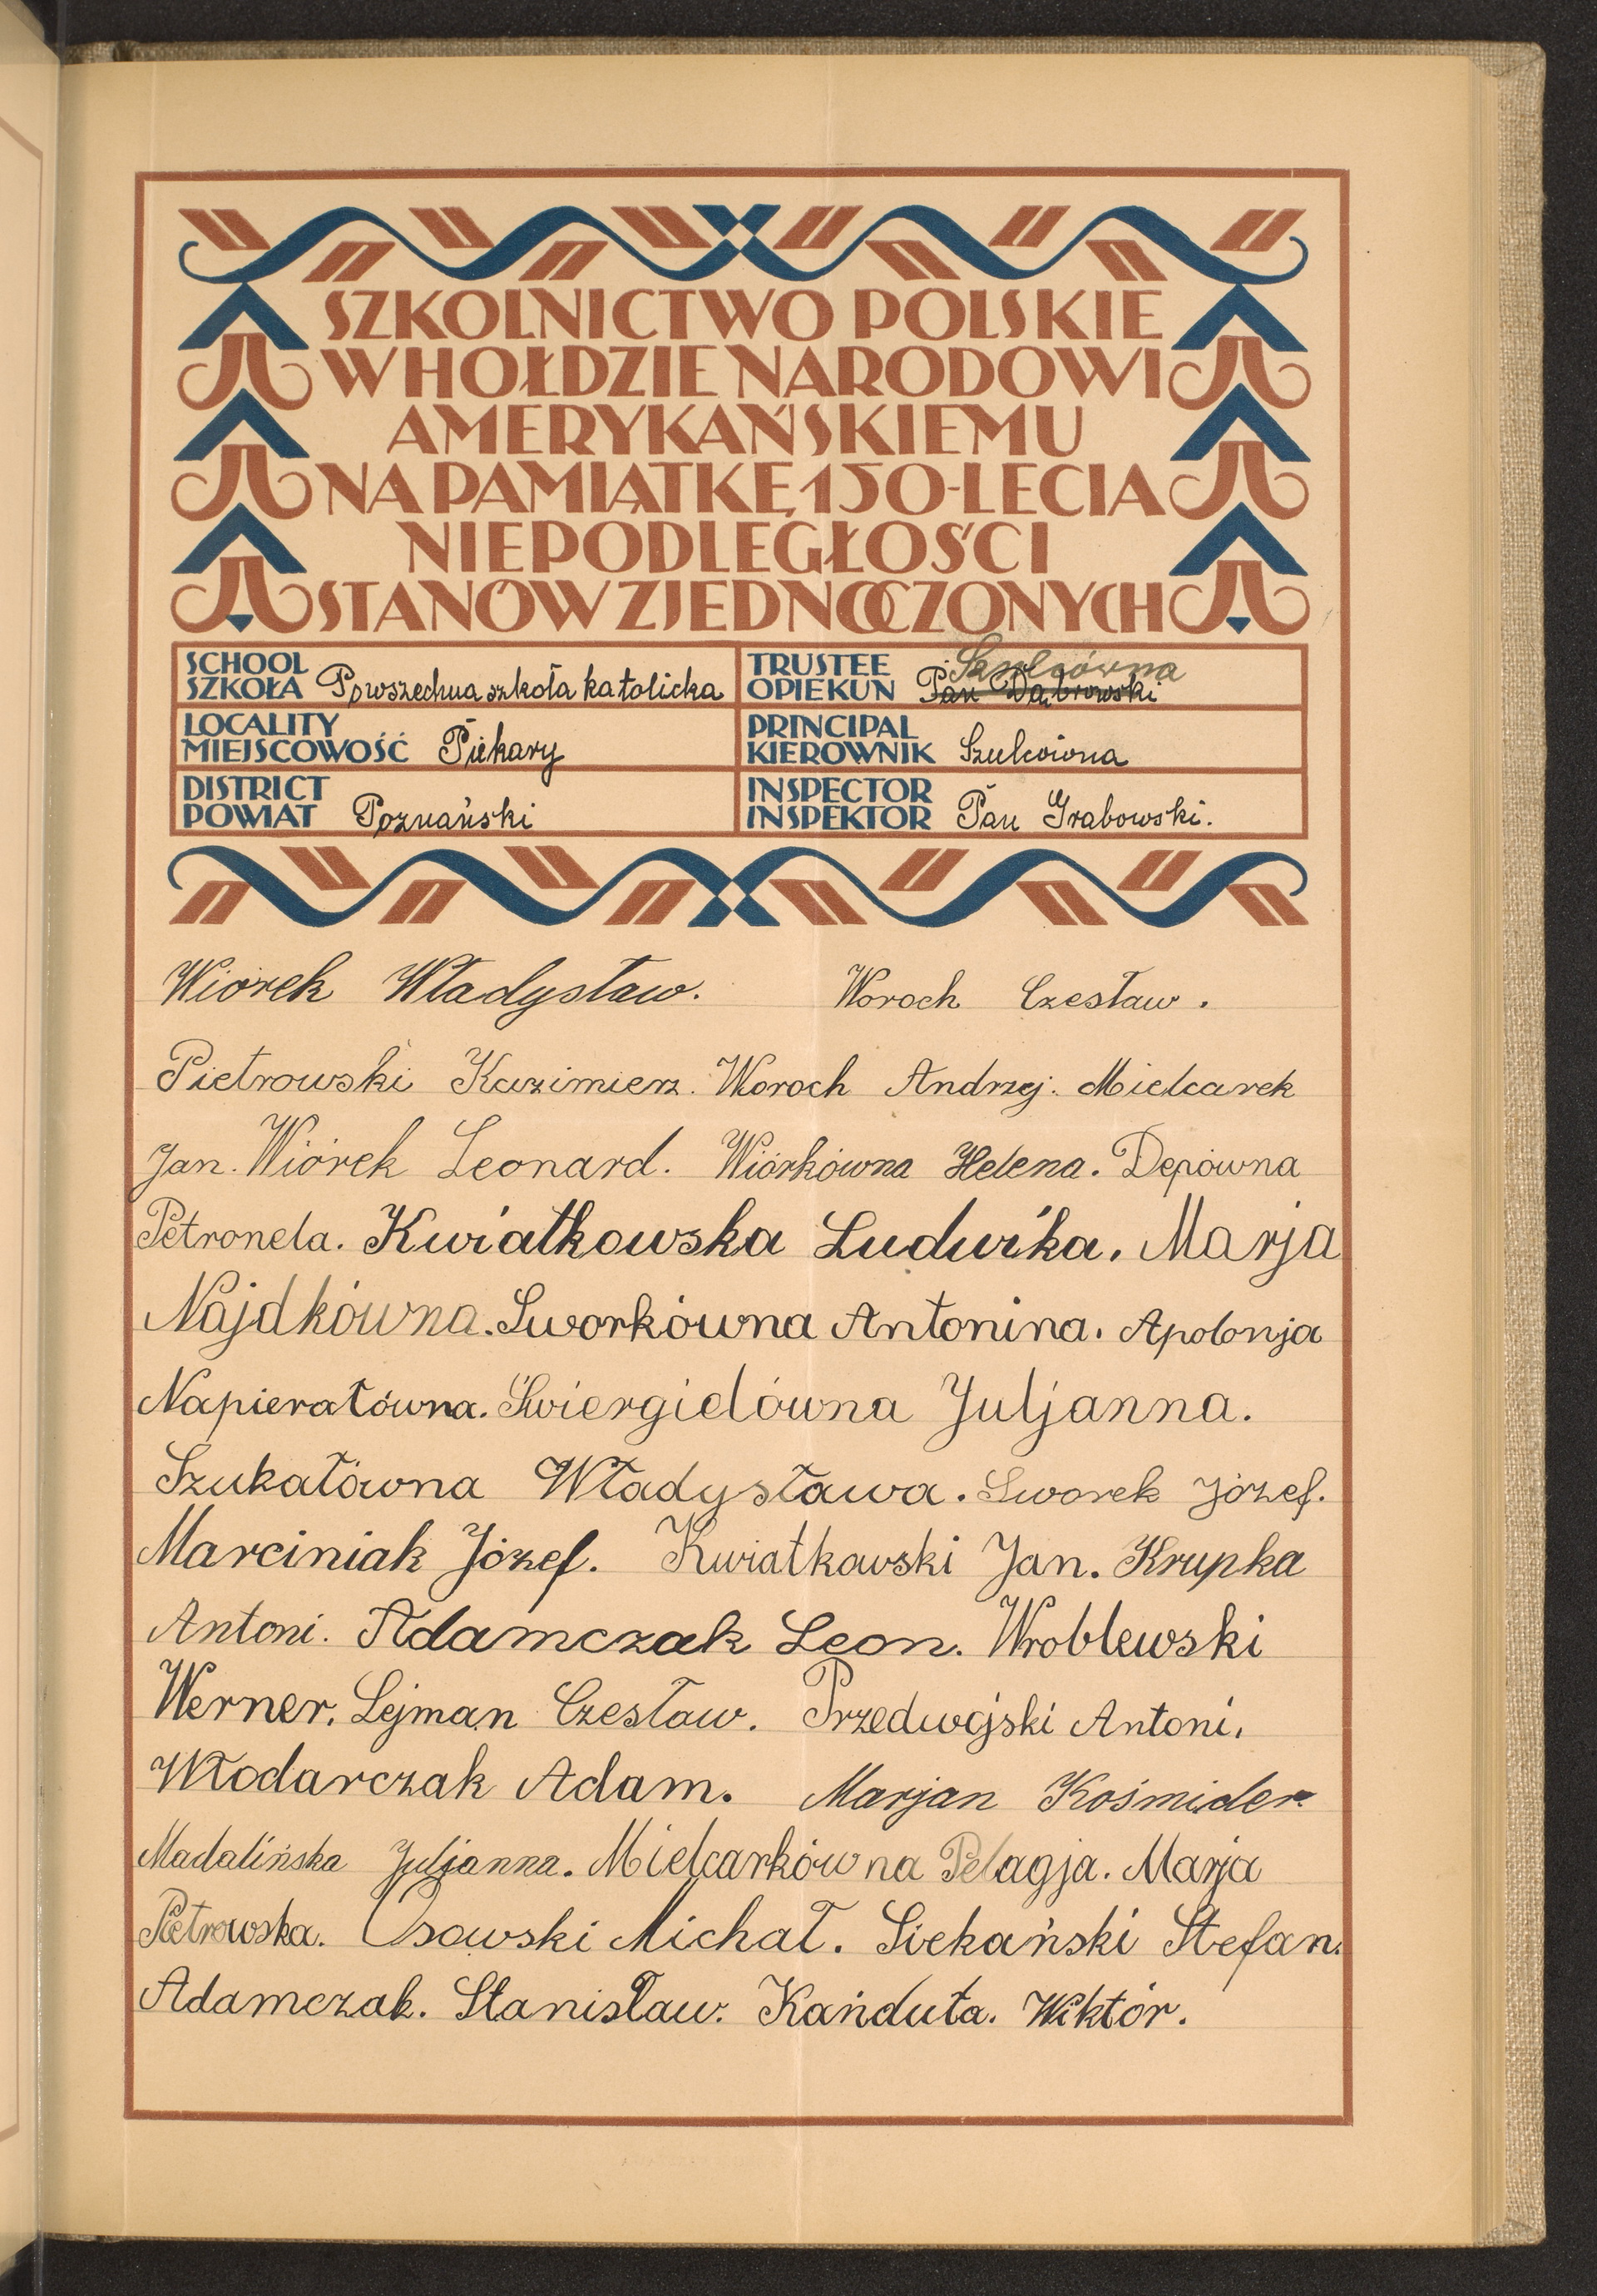 SZKOLNICTWO POLSKIE
W HOŁDZIE NARODOWI
AMERYKAŃSKIEMU
NA PAMIĄTKĘ 150-LECIA
NIEPODLEGŁOŚCI
STANÓW ZJEDNOCZONYCH
SCHOOL
SZKOŁA Powszechna szkoła katolicka
TRUSTEE Szulcówna
OPIEKUN Pan Dąbrowski
LOCALITY
MIEJSCOWOŚĆ Piekary
PRINCIPAL
KIEROWNIK Szulcówna
DISTRICT
POWIAT Poznański
INSPECTOR
INSPEKTOR Pan Grabowski.
Wiórek Władysław. Woroch Czesław.
Pietrowski Kazimierz. Woroch Andrzej. Mielcarek
Jan. Wiórek Leonard. Wiórkówna Helena. Depówna
Petronela. Kwiatkowska Ludwika. Marja
Najdkówna. Sworkówna Antonina. Apolonja
Napierałówna. Świergielówna Juljanna.
Szukałówna Władysława. Sworek Józef.
Marciniak Józef. Kwiatkowski Jan. Krupka
Antoni. Adamczak Leon. Wroblewski
Werner. Lejman Czesław. Przedwojski Antoni.
Włodarczak Adam. Marjan Kośmider
Madalińska Juljanna. Mielcarkówna Pelagja. Marja
Pietrowska. Osowski Michał. Siekański Stefan.
Adamczak. Stanisław. Kańduła. Wiktór.